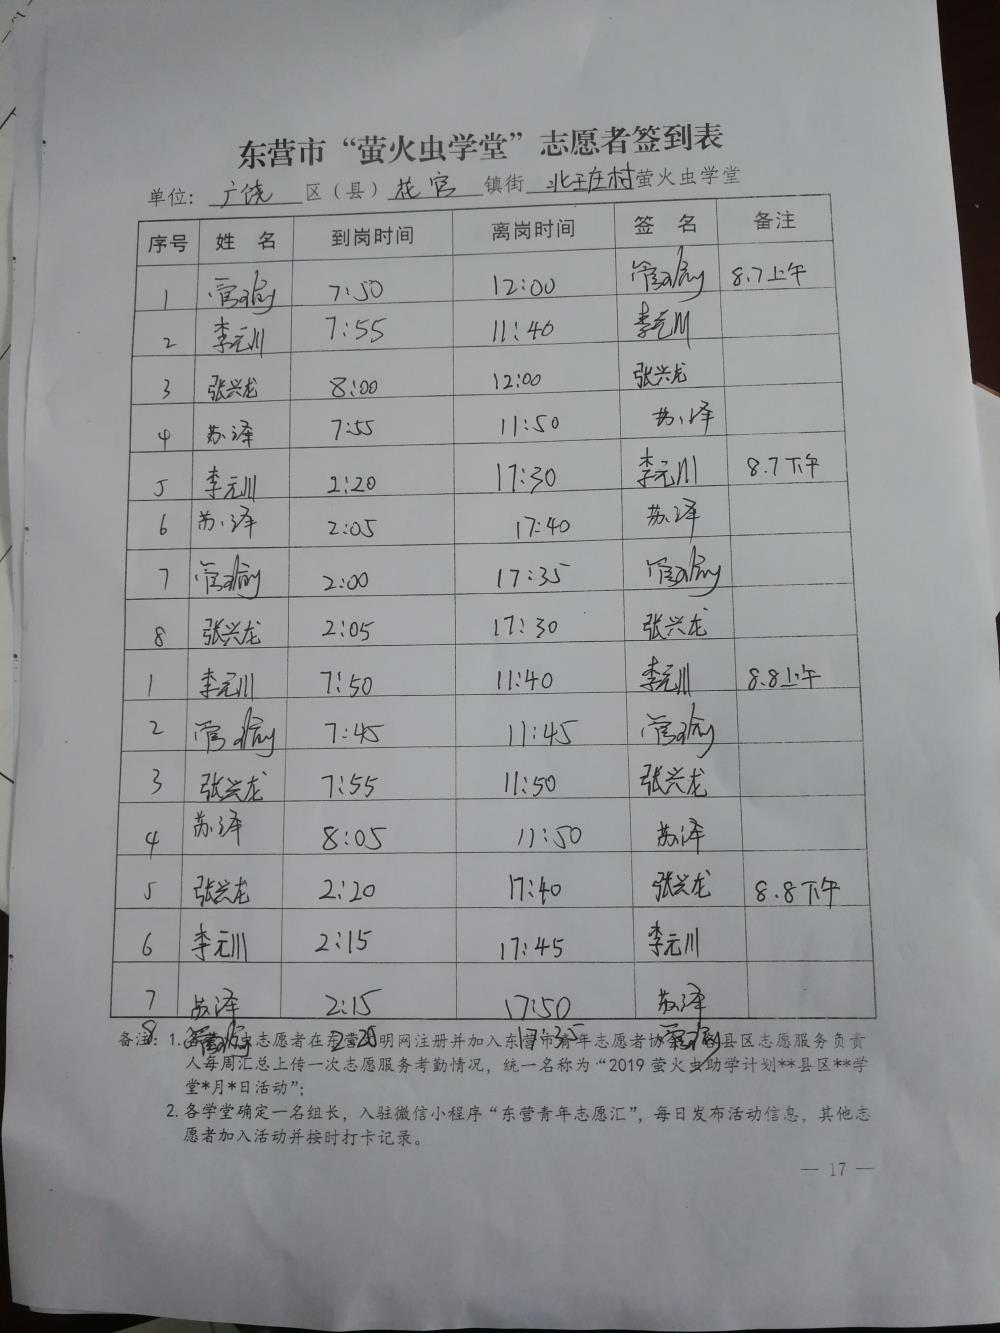 东营市“萤火虫学堂”志愿者签到表
单位：广饶区（县）花官镇街北王庄村萤火虫学堂
序号 姓名 到岗时间 离岗时间 签名 备注
1 7:50 12:00 8.7上午
2 李元川 7:55 11:40 李元川
3 张兴龙 8:00 12:00 张兴龙
4 苏泽 7:55 11:50 苏泽
5 李元川 2:20 17:30 李元川 8.7下午
6 苏泽 2:05 17:40 苏泽
7 2:00 17:35
8 张兴龙 2:05 17:30 张兴龙
1 李元川 7:50 11:40 李元川 8.8上午
2 7:45 11:45
3 张兴龙 7:55 11:50 张兴龙
4 苏泽 8:05 11:50 苏泽
5 张兴龙 2:20 17:40 张兴龙 8.8下午
6 李元川 2:15 17:45 李元川
7 苏泽 2:15 17:50 苏泽
8 2:20 17:35
备注：1. 志愿者在东营文明网注册并加入东营市青年志愿者协 县区志愿服务负责
人每周汇总上传一次志愿服务考勤情况，统一名称为“2019 萤火虫助学计划**县区**学
堂*月*日活动”；
2. 各学堂确定一名组长，入驻微信小程序“东营青年志愿汇”，每日发布活动信息，其他志
愿者加入活动并按时打卡记录。
— 17 —